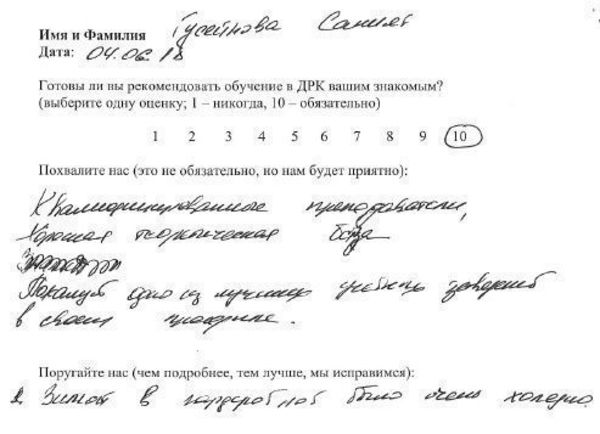 Имя и Фамилия Гусейнова Саният
Дата: 04.06.18
Готовы ли вы рекомендовать обучение в ДРК вашим знакомым?
(выберите одну оценку; 1 – никогда, 10 – обязательно)
1 2 3 4 5 6 7 8 9 10
Похвалите нас (это не обязательно, но нам будет приятно):
Квалифицированные преподаватели,
Хорошая теоретическая база
Пожалуй одно из лучших учебных заведений
в своем профиле.
Поругайте нас (чем подробнее, тем лучше, мы исправимся):
Зимой в гардеробной было очень холодно.